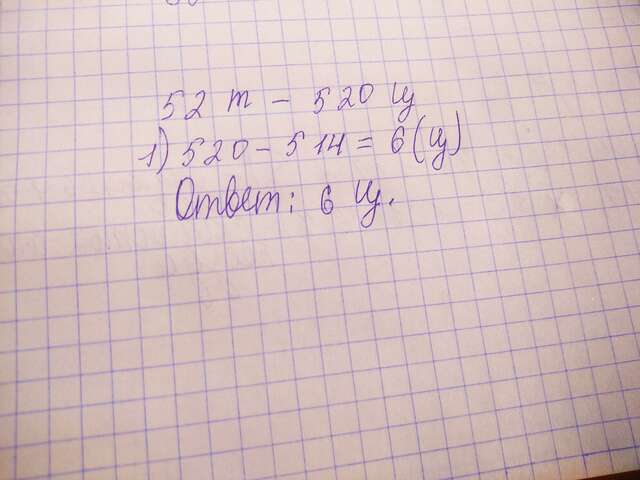 52 т - 520 ц
1) 520 - 514 = 6 (ц)
Ответ: 6 ц.